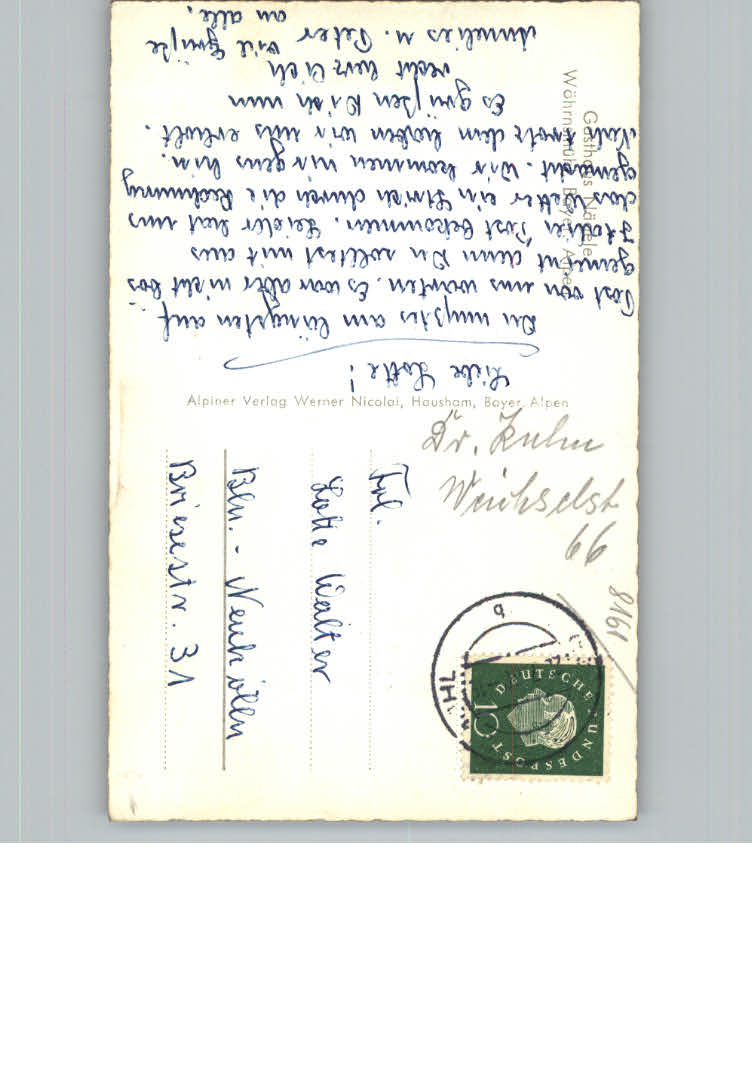 Gasthaus Nägele
Wöhrnsmühl Bayer. Alpen
Liebe Lotte!
Du mußtest am längsten auf
Post von uns warten. Es war aber nicht bös
gemeint denn Du solltest mit aus
Italien Post bekommen. Leider hat uns
das Wetter ein Strich durch die Rechnung
gemacht. Wir kommen nirgens hin.
Na trotz dem haben wir uns erholt.
Es grüßen Dich nun
recht herzlich
Annelies u. Peter viel Grüße
an alle.
Alpiner Verlag Werner Nicolai, Hausham, Bayer. Alpen
Dr. Kuhn
Weichselst
66
8161
Frl.
Lotte Walter
Bln. - Neukölln
Briesestr. 31
DEUTSCHE BUNDESPOST
10